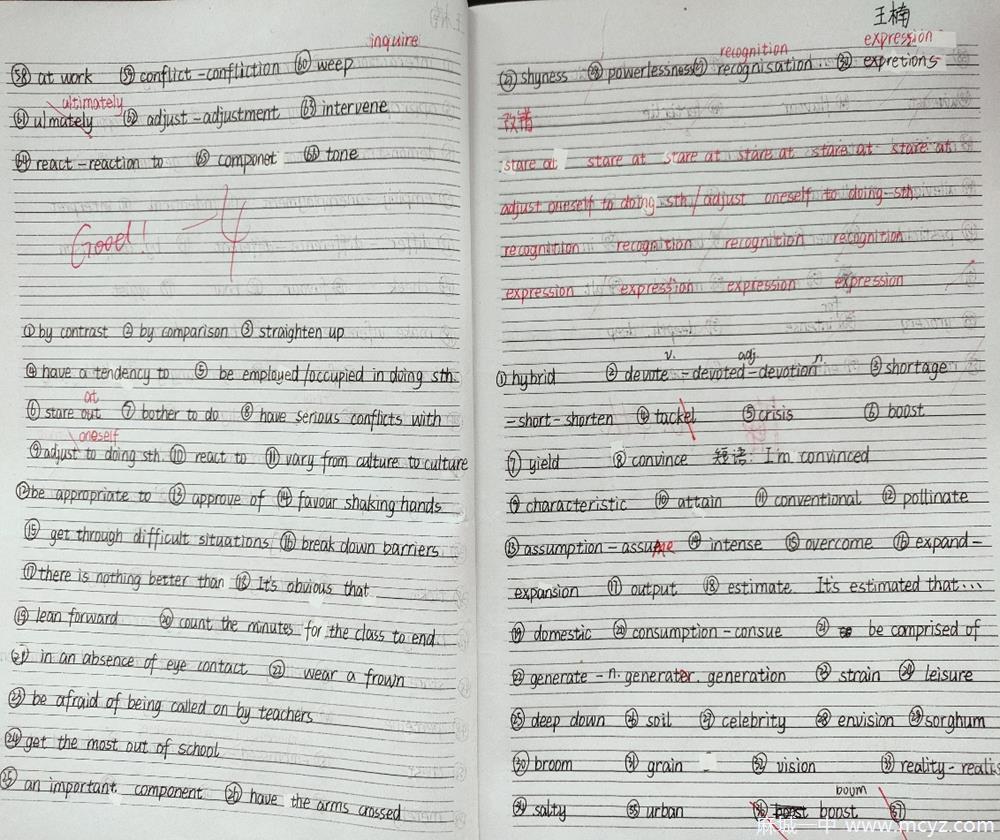 inquire
㊳ at work ㊴ conflict - confliction ㊵ weep
ultimately
ulmately adjust - adjustment intervene
react - reaction to componet tone
Good! -4
① by contrast ② by comparison ③ straighten up
④ have a tendency to ⑤ be employed/occupied in doing sth.
at
⑥ stare out ⑦ bother to do ⑧ have serious conflicts with
oneself
⑨ adjust to doing sth. ⑩ react to ⑪ vary from culture to culture
⑫ be appropriate to ⑬ approve of ⑭ favour shaking hands
⑮ get through difficult situations ⑯ break down barriers
⑰ there is nothing better than ⑱ It's obvious that
⑲ lean forward ⑳ count the minutes for the class to end.
㉑ in an absence of eye contact ㉒ wear a frown
㉓ be afraid of being called on by teachers
㉔ get the most out of school
㉕ an important component ㉖ have the arms crossed
王楠
recognition expression
㉗ shyness ㉘ powerlessness ㉙ recognisation ㉚ expretions
改错
stare at stare at stare at stare at stare at stare at
adjust oneself to doing sth./adjust oneself to doing sth.
recognition recognition recognition recognition
expression expression expression expression
v. adj. n
① hybrid ② devote - devoted - devotion ③ shortage
- short - shorten ④ tackel ⑤ crisis ⑥ boost
⑦ yield ⑧ convince 短语: I'm convinced
⑨ characteristic ⑩ attain ⑪ conventional ⑫ pollinate
⑬ assumption - assume ⑭ intense ⑮ overcome ⑯ expand -
expansion ⑰ output ⑱ estimate. It's estimated that...
⑲ domestic ⑳ consumption - consue ㉑ be comprised of
㉒ generate - n. generater. generation ㉓ strain ㉔ leisure
㉕ deep down ㉖ soil ㉗ celebrity ㉘ envision ㉙ sorghum
㉚ broom ㉛ grain ㉜ vision ㉝ reality - realis
boum
㉞ salty ㉟ urban ㊱ boost ㊲
麻城一中 www.mcyz.com